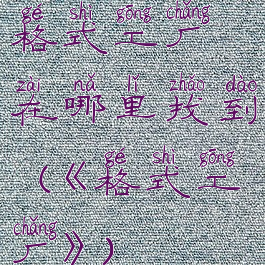 gé shì gōng chǎng
格式工厂
zài nǎ lǐ zhǎo dào
在哪里找到
gé shì gōng
（《格式工
chǎng
厂》）